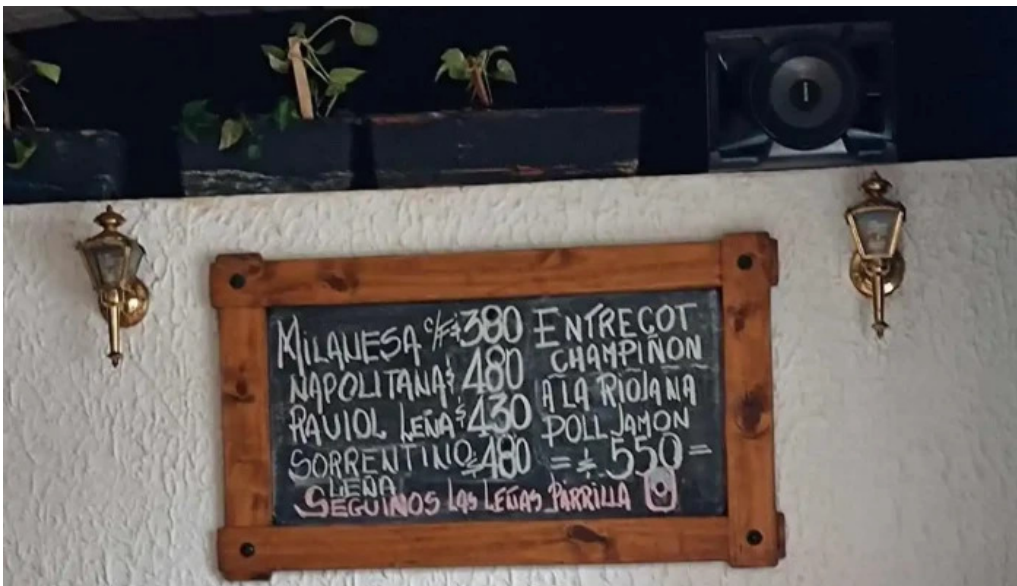 MILANESA c/F $380
NAPOLITANA $ 480
RAVIOL LEÑA $ 430
SORRENTINO $480
LEÑA
ENTRECOT
CHAMPIÑON
A LA RIOJANA
POLL JAMON
= $ 550 =
SEGUINOS LAS LEÑAS PARRILLA